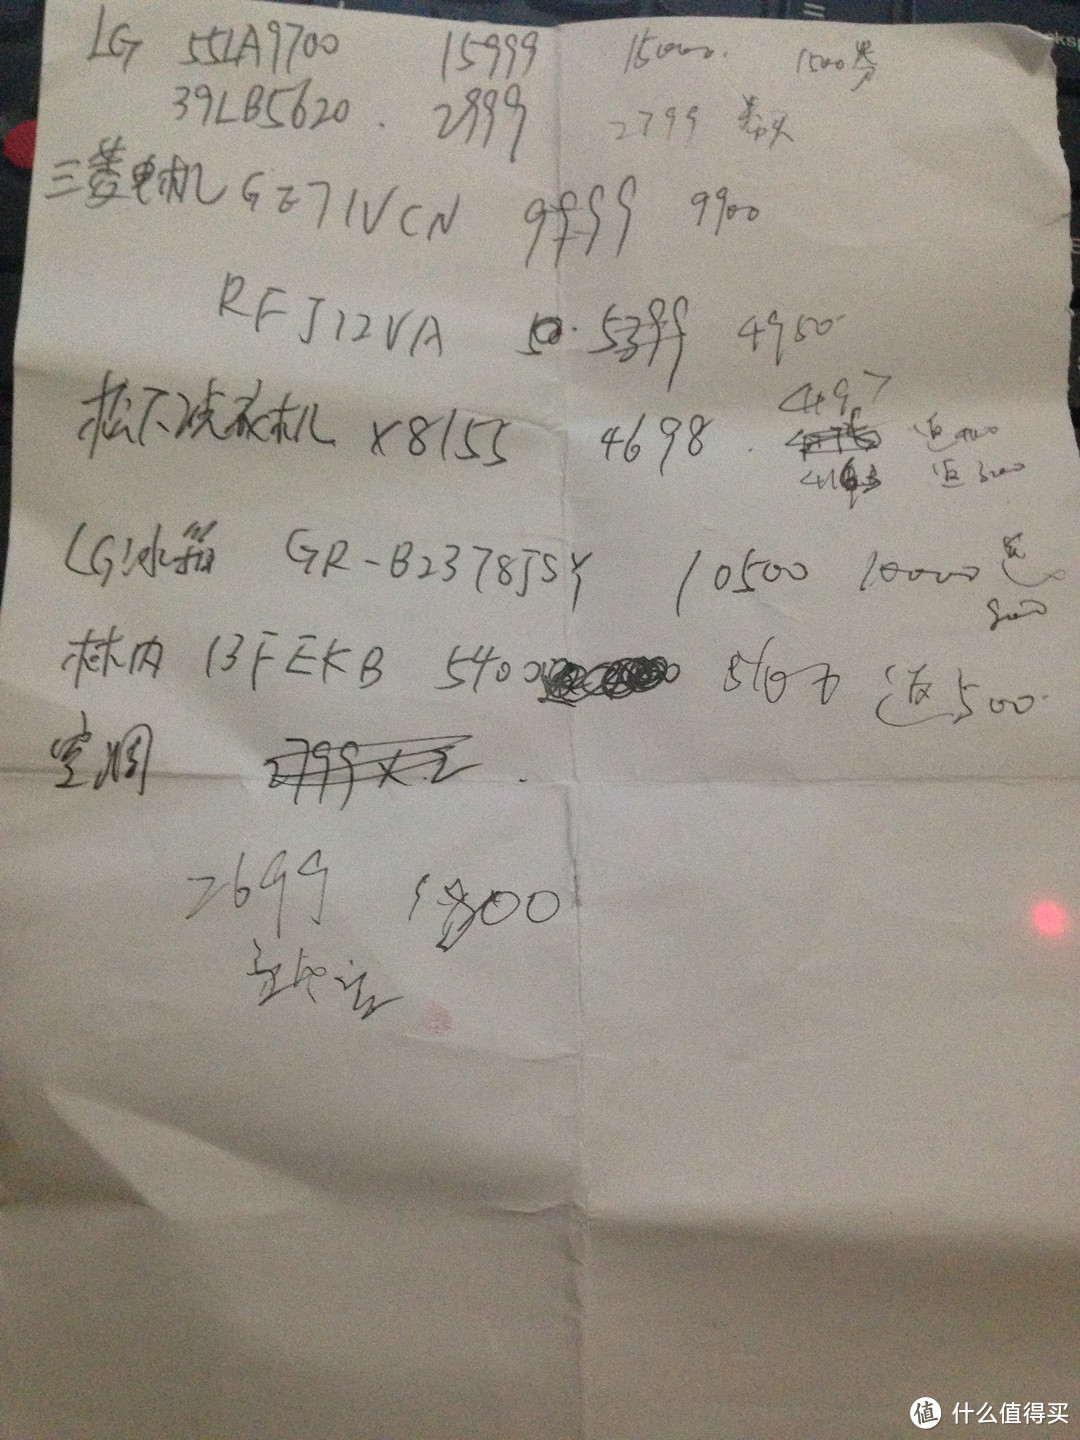 LG 55LA9700 15999 15000. 1500券
39LB5620. 2999 2799
三菱电机 GE71VCN 9999 9900
RFJ12VA 50. 5399 4950
松下洗衣机 X8155 4698. 4497
返
返300
LG冰箱 GR-B2378JSY 10500 10000
800
林内 13FEKB 5400 返500
空调 2799×2.
2699 1800
值 什么值得买